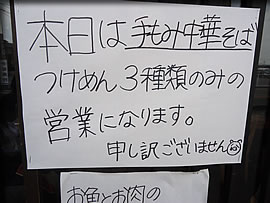 本日は手もみ中華そば
つけめん3種類のみの
営業になります。
申し訳ございません
お魚とお肉の